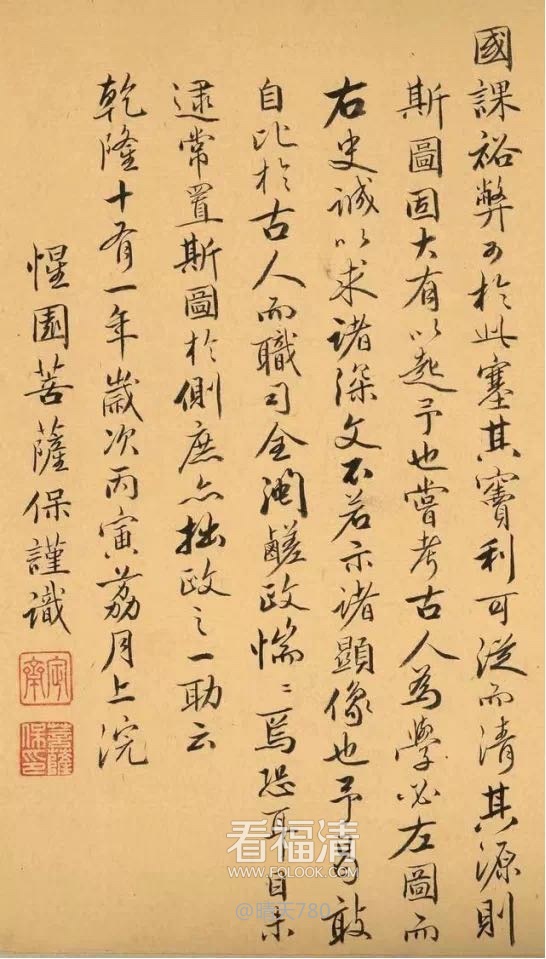 國課裕弊可於此塞其竇利可從而清其源則
斯圖固大有以起予也嘗考古人為學必左圖而
右史誠以求諸深文不若示諸顯像也予曷敢
自比於古人而職司全閩鹺政惴〻焉恐耳目未
逮常置斯圖於側庶亦拙政之一助云
乾隆十有一年歲次丙寅荔月上浣
惺園菩薩保謹識
菩薩
保印
看福清
WWW.FQLOOK.COM
@晴天780